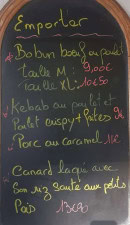 Emporter
Bobun bœuf ou poulet
taille M : 9,00€
taille XL : 10€50
Kebab au poulet
Poulet crispy + Pâtes 9€
Porc au caramel 11€
Canard laqué avec
son riz sauté aux petits
Pois 13€90